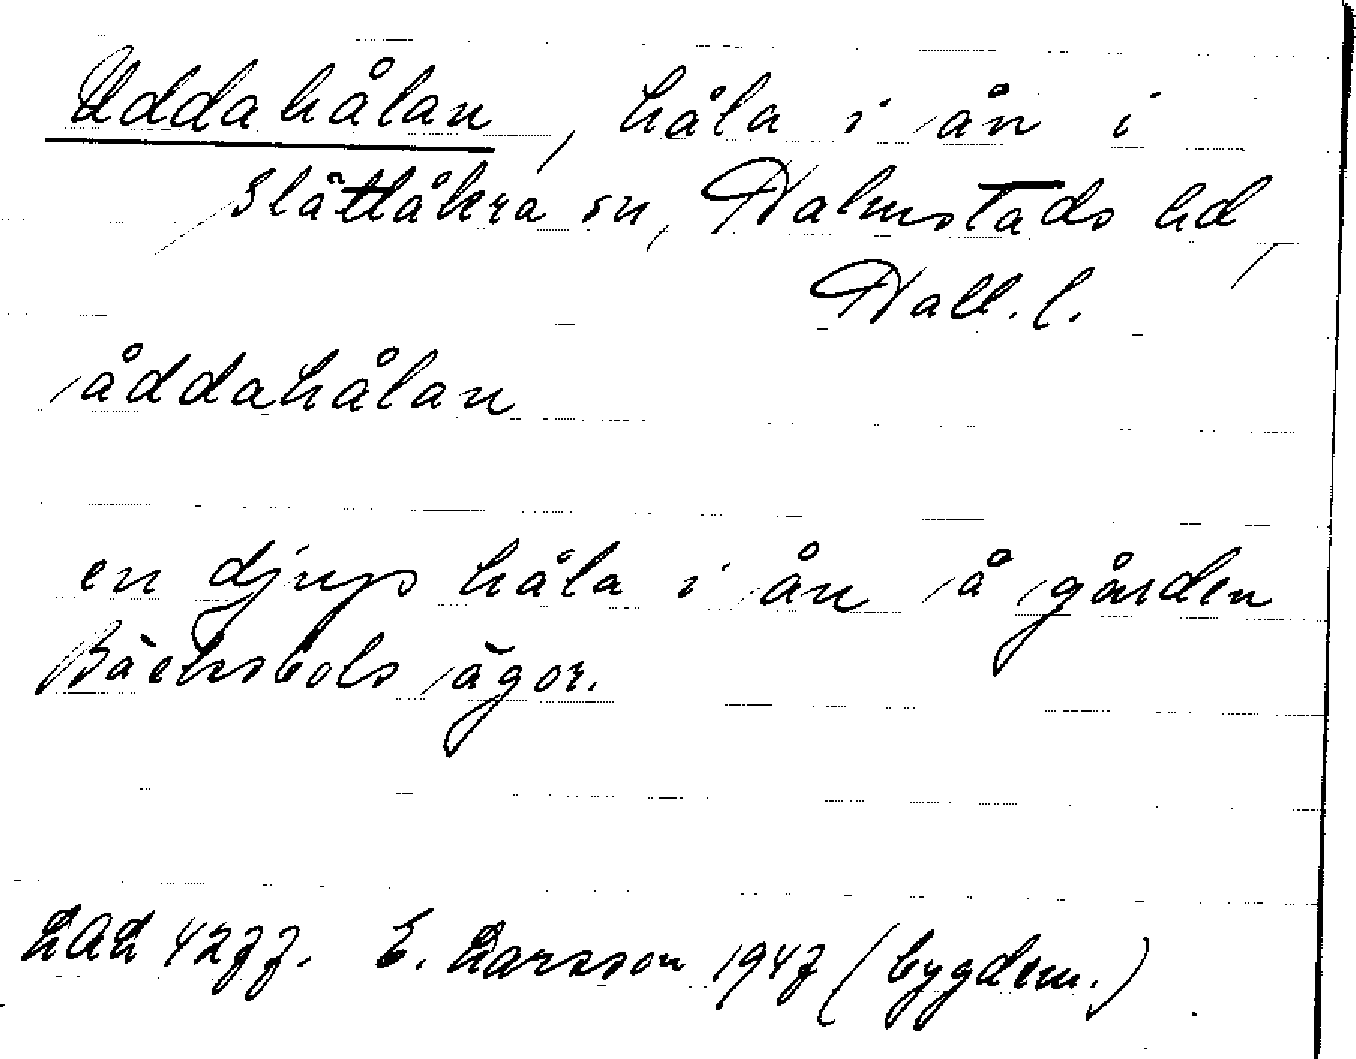 Uddahålan, håla i ån i
Slättåkra sn, Halmstads hd,
Hall. l.
åddahålan
en djup håla i ån å gården
Bäckabols ägor.
LAL 4277. E. Larsson 1947 (bygdem.)